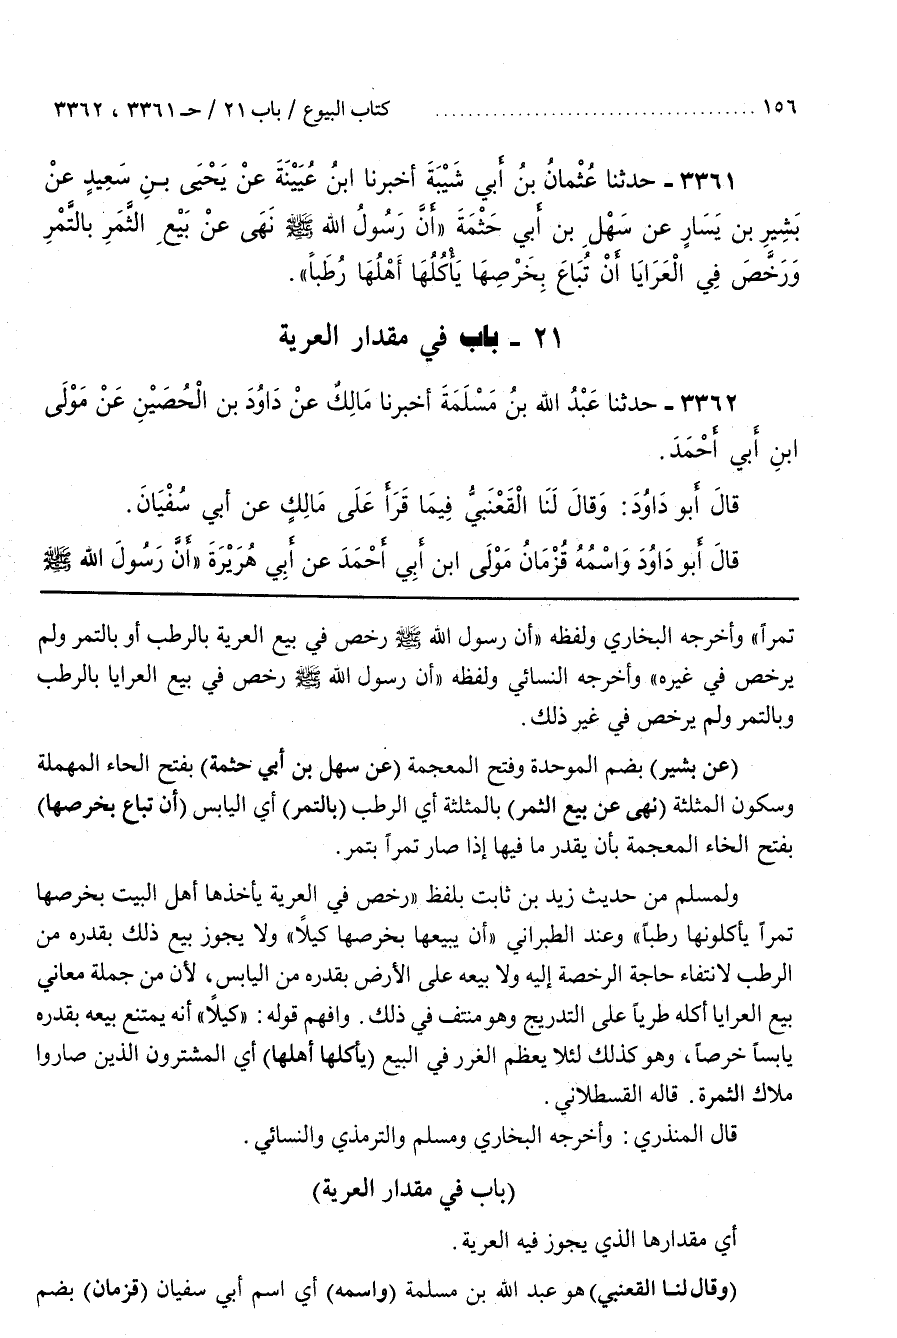 ١٥٦ ........................................ كتاب البيوع / باب ٢١ / حـ ٣٣٦١ ، ٣٣٦٢
٣٣٦١ ـ حدثنا عُثْمانُ بنُ أَبي شَيْبَةَ أخبرنا ابنُ عُيَيْنَةَ عنْ يَحْيَى بـنِ سَعِيدٍ عنْ
بَشِيرِ بن يَسَارٍ عن سَهْلِ بن أَبي حَثْمَةَ «أَنَّ رَسُولُ الله ﷺ نَهَى عنْ بَيْعِ الثَّمَرِ بالتَّمْرِ
وَرَخَّصَ فِي الْعَرَايَا أَنْ تُبَاعَ بِخَرْصِهَا يَأْكُلُهَا أَهْلُهَا رُطَباً».
٢١ ـ باب في مقدار العرية
٣٣٦٢ ـ حدثنا عَبْدُ الله بنُ مَسْلَمَةَ أخبرنا مَالِكٌ عنْ دَاوُدَ بن الْحُصَيْنِ عَنْ مَوْلَى
ابنِ أَبي أَحْمَدَ.
قالَ أبو دَاوُدَ: وَقالَ لَنَا الْقَعْنَبيُّ فِيمَا قَرَأَ عَلَى مَالِكٍ عن أبي سُفْيَانَ.
قالَ أَبو دَاوُدَ وَاسْمُهُ قُزْمَانُ مَوْلَى ابن أَبي أَحْمَدَ عن أَبِي هُرَيْرَةَ «أَنَّ رَسُولَ الله ﷺ
تمراً» وأخرجه البخاري ولفظه «أن رسول الله ﷺ رخص في بيع العرية بالرطب أو بالتمر ولم
يرخص في غيره» وأخرجه النسائي ولفظه «أن رسول الله ﷺ رخص في بيع العرايا بالرطب
وبالتمر ولم يرخص في غير ذلك.
(عن بشير) بضم الموحدة وفتح المعجمة (عن سهل بن أبي حثمة) بفتح الحاء المهملة
وسكون المثلثة (نهى عن بيع الثمر) بالمثلثة أي الرطب (بالتمر) أي اليابس (أن تباع بخرصها)
بفتح الخاء المعجمة بأن يقدر ما فيها إذا صار تمراً بتمر.
ولمسلم من حديث زيد بن ثابت بلفظ «رخص في العرية يأخذها أهل البيت بخرصها
تمراً يأكلونها رطباً» وعند الطبراني «أن يبيعها بخرصها كيلًا» ولا يجوز بيع ذلك بقدره من
الرطب لانتفاء حاجة الرخصة إليه ولا بيعه على الأرض بقدره من اليابس، لأن من جملة معاني
بيع العرايا أكله طرياً على التدريج وهو منتف في ذلك. وافهم قوله: «كيلًا» أنه يمتنع بيعه بقدره
يابساً خرصاً، وهو كذلك لئلا يعظم الغرر في البيع (يأكلها أهلها) أي المشترون الذين صاروا
ملاك الثمرة. قاله القسطلاني.
قال المنذري: وأخرجه البخاري ومسلم والترمذي والنسائي.
(باب في مقدار العرية)
أي مقدارها الذي يجوز فيه العرية.
(وقال لنـا القعنبي) هو عبد الله بن مسلمة (واسمه) أي اسم أبي سفيان (قزمان) بضم